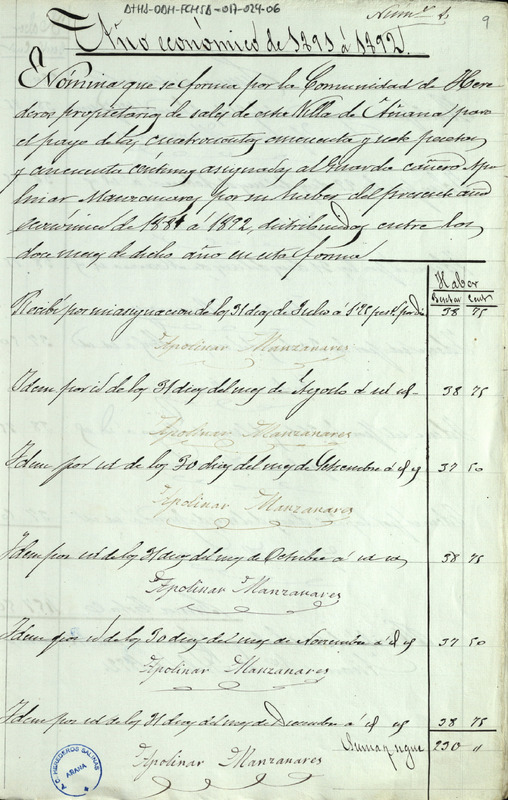 ATHA-DAH-FCHSA-017-024-06
Núm.º 1.
9
Año económico de 1891 á 1892.
Nómina que se forma por la Comunidad de Here
deros propietarios de sales de esta Villa de Añana para
el pago de las cuatrocientas cincuenta y siete pesetas
y cincuenta céntimos asignadas al Guarda cañero Apo
linar Manzanares, por su haber del presente año
económico de 1891 a 1892, distribuidas entre los
doce meses de dicho año en esta forma
Haber
Pesetas Cent
Recibí por mi asignacion de los 31 dias de Julio á 1'25 peset por dia 38 75
Apolinar Manzanares
Idem por id de los 31 dias del mes de Agosto á id id 38 75
Apolinar Manzanares
Idem por id de los 30 dias del mes de Setiembre á id id 37 50
Apolinar Manzanares
Idem por id de los 31 dias del mes de Octubre á id id 38 75
Apolinar Manzanares
Idem por id de los 30 dias del mes de Noviembre á id id 37 50
Apolinar Manzanares
Idem por id de los 31 dias del mes de Diciembre á id id 38 75
Suma y sigue 230 "
Apolinar Manzanares
HEREDEROS SALINAS
AÑANA